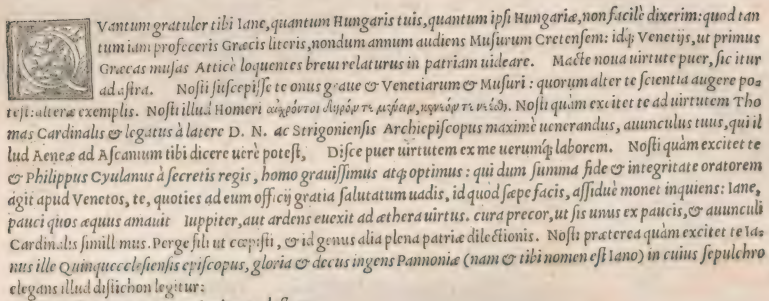 QVantum gratuler tibi Iane, quantum Hungaris tuis, quantum ipsi Hungariæ, non facilè dixerim: quod tan
tum iam profeceris Græcis literis, nondum annum audiens Musurum Cretensem: idq; Venetijs, ut primus
Græcas musas Atticè loquentes breui relaturus in patriam uideare. Macte noua uirtute puer, sic itur
ad astra. Nosti suscepisse te onus graue & Venetiarum & Musuri: quorum alter te scientia augere po=
test: alteræ exemplis. Nosti illud Homeri Nosti quàm excitet te ad uirtutem Tho
mas Cardinalis & legatus à latere D. N. ac Strigoniensis Archiepiscopus maximè uenerandus, auunculus tuus, qui il
lud Aeneæ ad Ascanium tibi dicere uerè potest, Disce puer uirtutem ex me uerumq; laborem. Nosti quàm excitet te
& Philippus Cyulanus à secretis regis, homo grauissimus atq; optimus: qui dum summa fide & integritate oratorem
agit apud Venetos, te, quoties ad eum officij gratia salutatum uadis, id quod sæpe facis, assiduè monet inquiens: Iane,
pauci quos æquus amauit Iuppiter, aut ardens euexit ad æthera uirtus. cura precor, ut sis unus ex paucis, & auunculi
Cardinalis simill mus. Perge fili ut cœpisti, & id genus alia plena patriæ dilectionis. Nosti præterea quàm excitet te Ia=
nus ille Quinqueecclesiensis episcopus, gloria & decus ingens Pannoniæ (nam & tibi nomen est Iano) in cuius sepulchro
elegans illud distichon legitur: